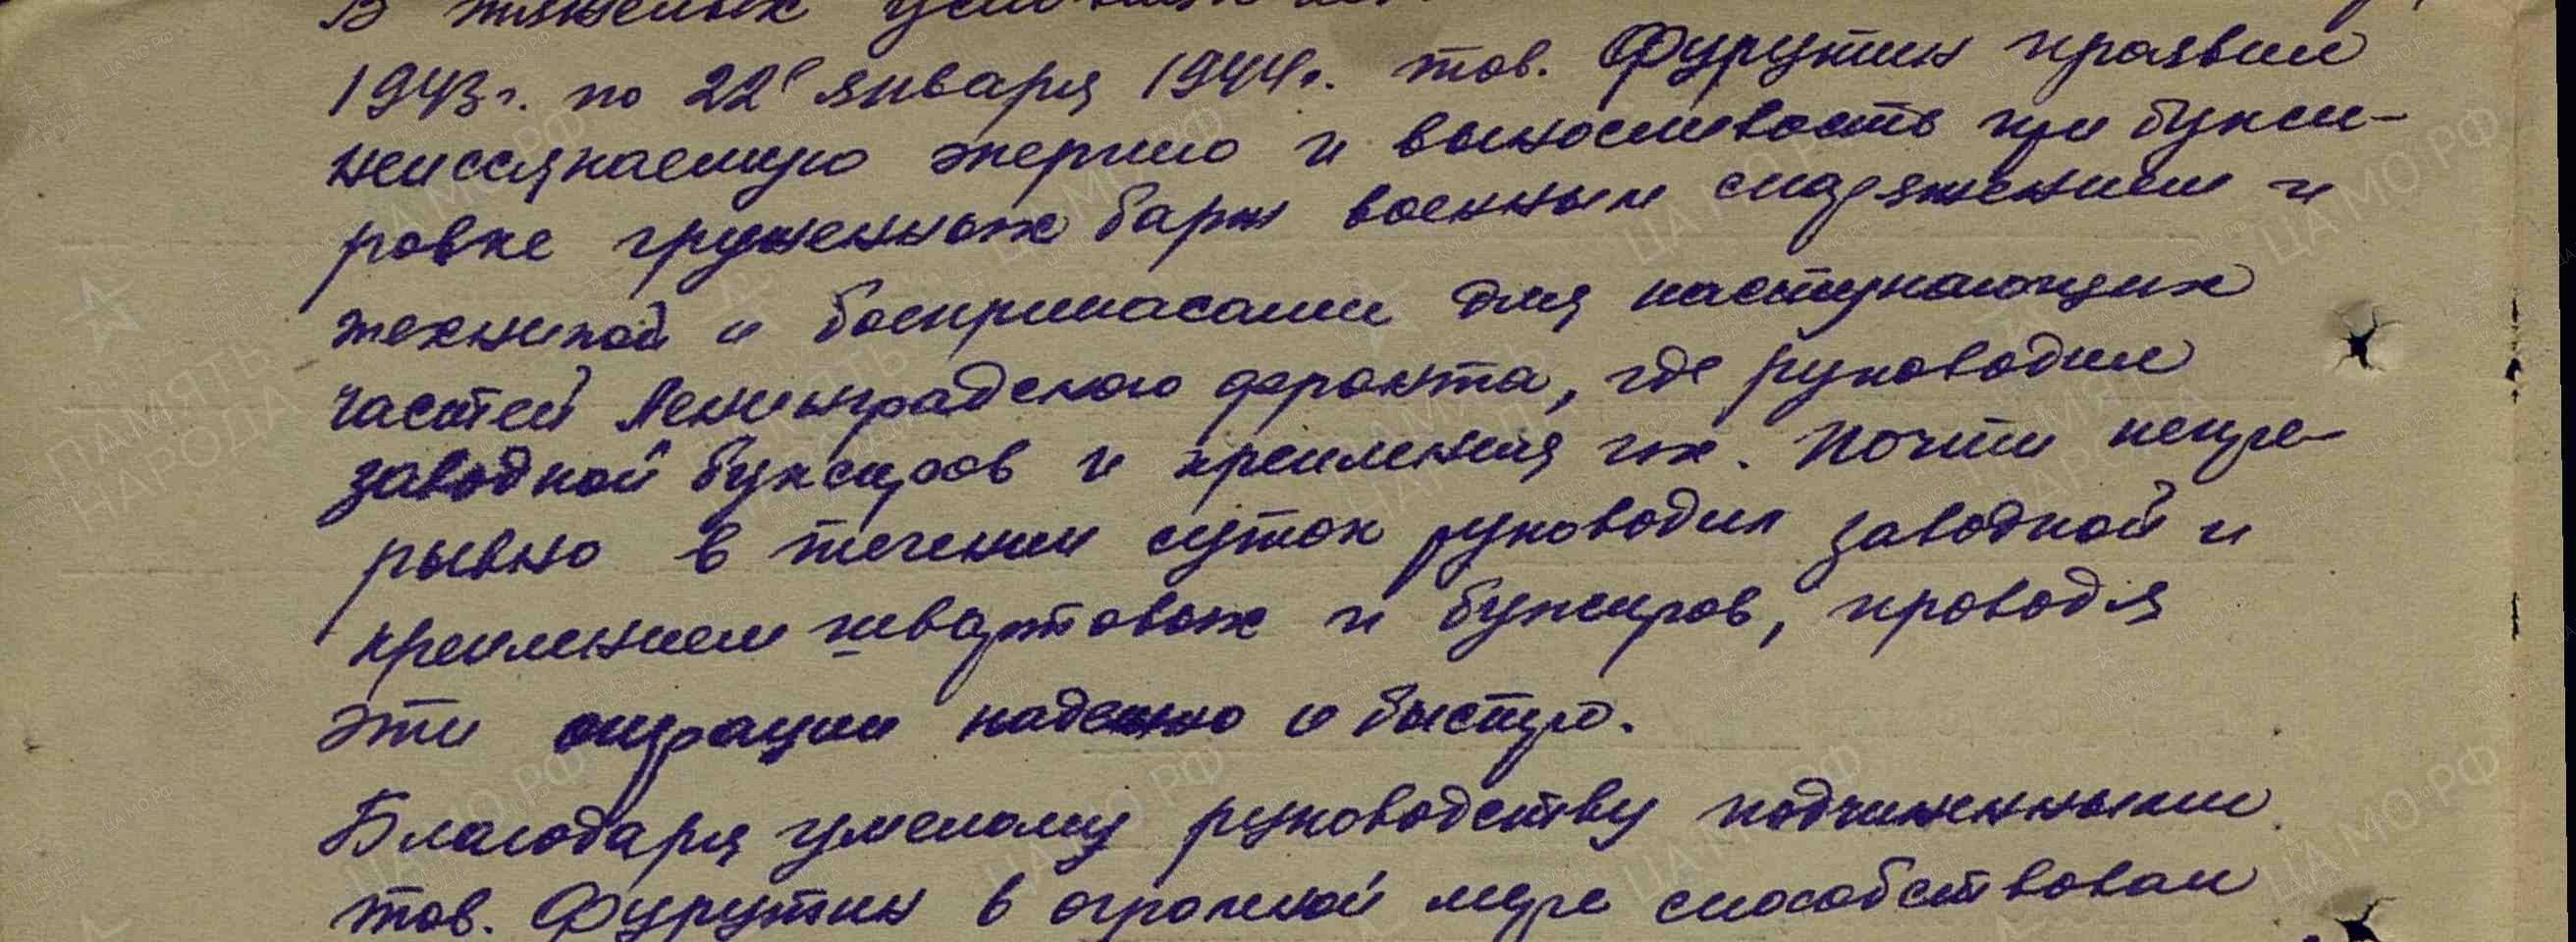 В тяжелых условиях
1943 г. по 22е января 1944 г. тов. Фурутин проявил
неиссякаемую энергию и выносливость при букси-
ровке груженных барж военным снаряжением и
техникой и боеприпасами для наступающих
частей Ленинградского фронта, где руководил
заводкой буксиров и крепления их. Почти непре-
рывно в течении суток руководил заводкой и
креплением швартовых и буксиров, проводя
эти операции надежно и быстро.
Благодаря умелому руководству подчиненными
тов. Фурутин в огромной мере способствовал